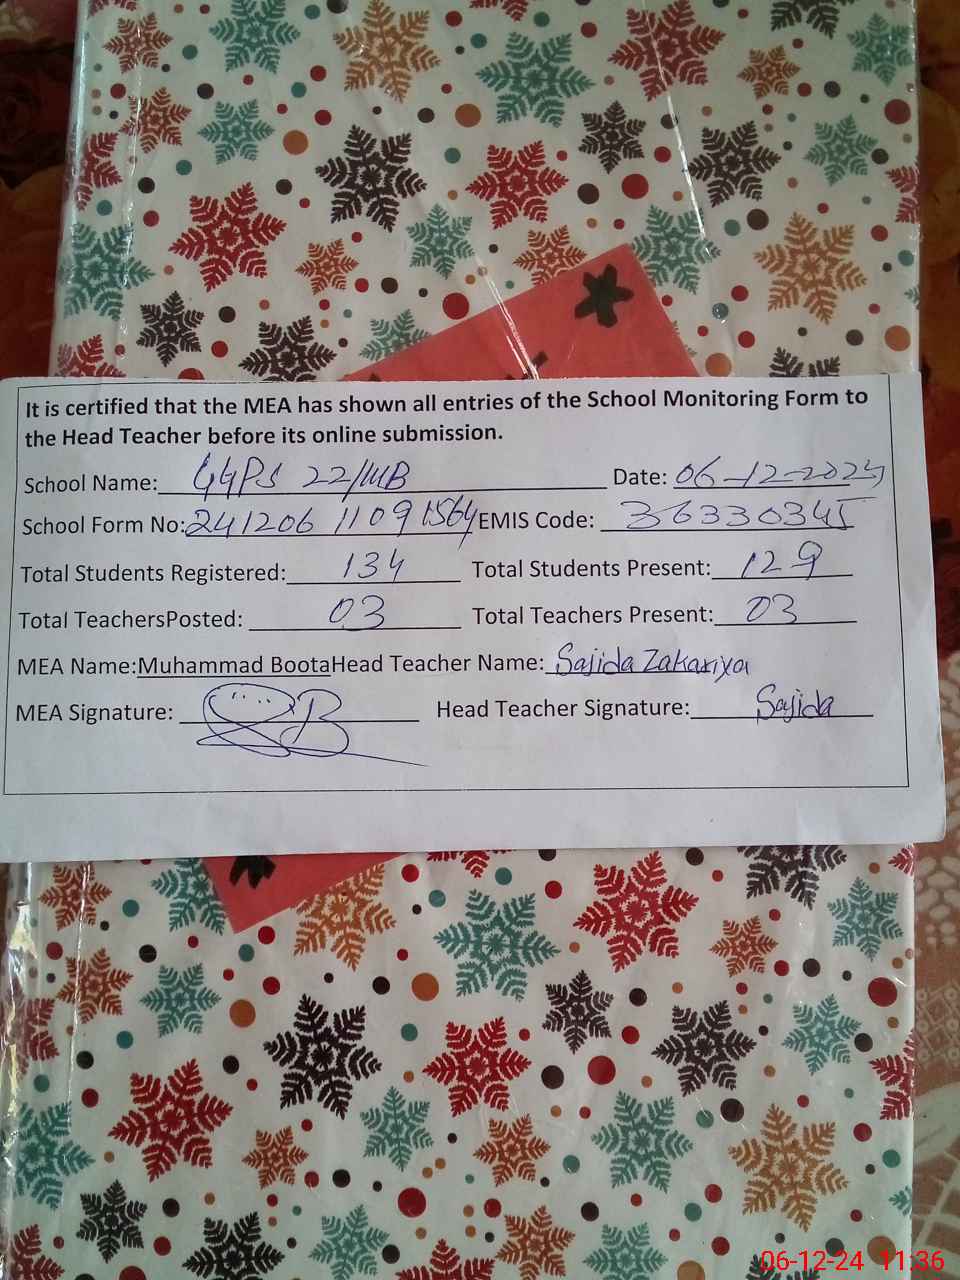 It is certified that the MEA has shown all entries of the School Monitoring Form to
the Head Teacher before its online submission.
School Name: GGPS 22/MB Date: 06-12-2024
School Form No: 241206 11091564 EMIS Code: 36330345
Total Students Registered: 134 Total Students Present: 129
Total TeachersPosted: 03 Total Teachers Present: 03
MEA Name:Muhammad BootaHead Teacher Name: Sajida Zakariya
MEA Signature: Head Teacher Signature: Sajida
06-12-24 11:36